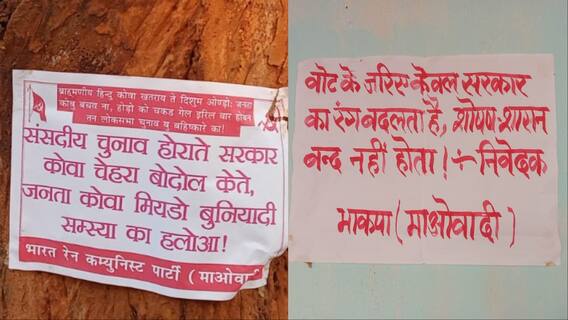 ब्राहमणीय हिन्दू कोवा खतराय ते दिशुम ओण्डो: जनता
कोबु बचाव ना, होड़ो को चकड़ गेल इरिल बार होबन
तन लोकसभा चुनाव बु बहिष्कारे का!
संसदीय चुनाव होराते सरकार
कोवा चेहरा बोदोल केते,
जनता कोवा मियडो बुनियादी
समस्या का हलोआ!
भारत रेन कम्युनिस्ट पार्टी (माओवादी
वोट के जरिए केवल सरकार
का रंग बदलता है, शोषण शासन
बन्द नहीं होता! ÷ निवेदक
भाकपा (माओवादी)